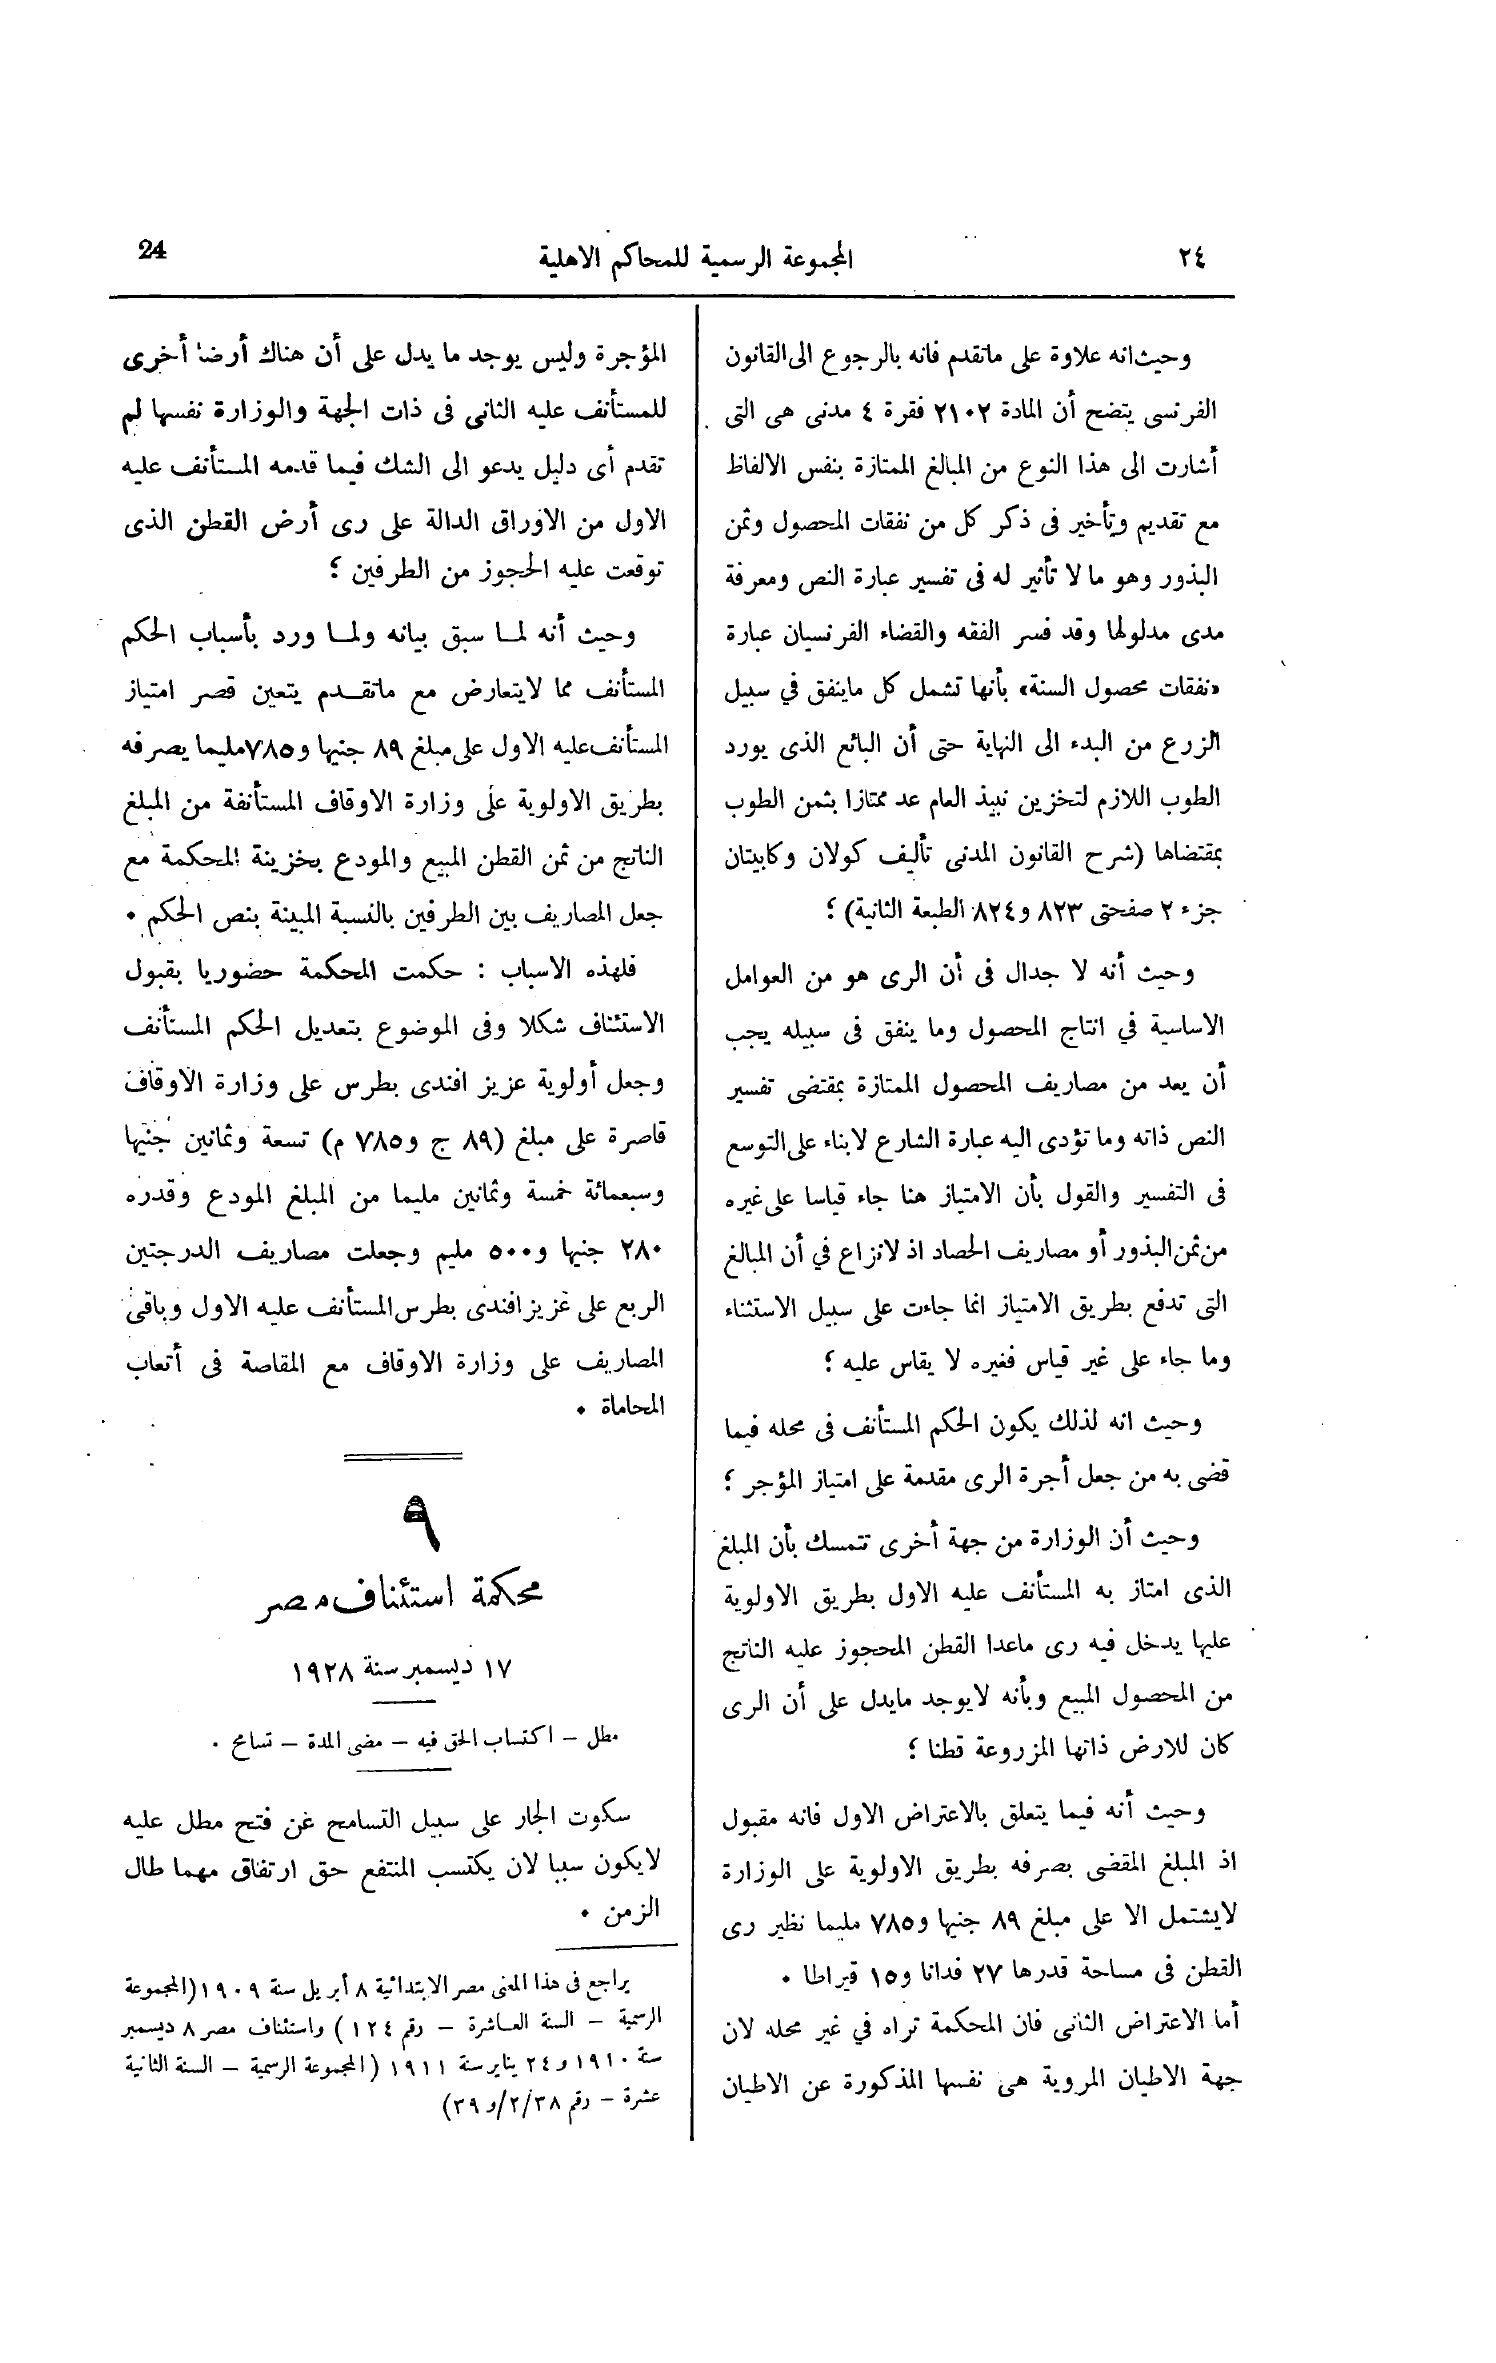 ٢٤
المجموعة الرسمية للمحاكم الاهلية
24
وحيث انه علاوة على ماتقدم فانه بالرجوع الى القانون
الفرنسى يتضح أن المادة ٢١٠٢ فقرة ٤ مدنى هى التى
أشارت الى هذا النوع من المبالغ الممتازة بنفس الالفاظ
مع تقديم وتأخير فى ذكر كل من نفقات المحصول وثمن
البذور وهو ما لا تأثير له فى تفسير عبارة النص ومعرفة
مدى مدلولها وقد فسر الفقه والقضاء الفرنسيان عبارة
«نفقات محصول السنة» بأنها تشمل كل ماينفق في سبيل
الزرع من البدء الى النهاية حتى أن البائع الذى يورد
الطوب اللازم لتخزين نبيذ العام عد ممتازا بثمن الطوب
بمقتضاها (شرح القانون المدنى تأليف كولان وكابيتان
جزء ٢ صفحتى ٨٢٣ و٨٢٤ الطبعة الثانية) ؛
وحيث أنه لا جدال فى أن الرى هو من العوامل
الاساسية في انتاج المحصول وما ينفق فى سبيله يجب
أن يعد من مصاريف المحصول الممتازة بمقتضى تفسير
النص ذاته وما تؤدى اليه عبارة الشارع لا بناء على التوسع
فى التفسير والقول بأن الامتياز هنا جاء قياسا على غيره
من ثمن البذور أو مصاريف الحصاد اذ لانزاع في أن المبالغ
التى تدفع بطريق الامتياز انما جاءت على سبيل الاستثناء
وما جاء على غير قياس فغيره لا يقاس عليه ؛
وحيث انه لذلك يكون الحكم المستأنف فى محله فيما
قضى به من جعل أجرة الرى مقدمة على امتياز المؤجر ؛
وحيث أن الوزارة من جهة أخرى تتمسك بأن المبلغ
الذى امتاز به المستأنف عليه الاول بطريق الاولوية
عليها يدخل فيه رى ماعدا القطن المحجوز عليه الناتج
من المحصول المبيع وبأنه لايوجد مايدل على أن الرى
كان للارض ذاتها المزروعة قطنا ؛
وحيث أنه فيما يتعلق بالاعتراض الاول فانه مقبول
اذ المبلغ المقضى بصرفه بطريق الاولوية على الوزارة
لايشتمل الا على مبلغ ٨٩ جنيها و٧٨٥ مليما نظير رى
القطن فى مساحة قدرها ٢٧ فدانا و١٥ قيراطا .
أما الاعتراض الثانى فان المحكمة تراه في غير محله لان
جهة الاطيان المروية هى نفسها المذكورة عن الاطيان
المؤجرة وليس يوجد ما يدل على أن هناك أرضا أخرى
للمستأنف عليه الثانى فى ذات الجهة والوزارة نفسها لم
تقدم أى دليل يدعو الى الشك فيما قدمه المستأنف عليه
الاول من الاوراق الدالة على رى أرض القطن الذى
توقعت عليه الحجوز من الطرفين ؛
وحيث أنه لما سبق بيانه ولما ورد بأسباب الحكم
المستأنف مما لايتعارض مع ماتقدم يتعين قصر امتياز
المستأنف عليه الاول على مبلغ ٨٩ جنيها و٧٨٥مليما يصرفه
بطريق الاولوية على وزارة الاوقاف المستأنفة من المبلغ
الناتج من ثمن القطن المبيع والمودع بخزينة المحكمة مع
جعل المصاريف بين الطرفين بالنسبة المبينة بنص الحكم .
فلهذه الاسباب : حكمت المحكمة حضوريا بقبول
الاستئناف شكلا وفى الموضوع بتعديل الحكم المستأنف
وجعل أولوية عزيز افندى بطرس على وزارة الاوقاف
قاصرة على مبلغ (٨٩ ج و٧٨٥ م) تسعة وثمانين جنيها
وسبعمائة خمسة وثمانين مليما من المبلغ المودع وقدره
٢٨٠ جنيها و٥٠٠ مليم وجعلت مصاريف الدرجتين
الربع على عزيز افندى بطرس المستأنف عليه الاول وباقى
المصاريف على وزارة الاوقاف مع المقاصة فى أتعاب
المحاماة .
٩
محكمة استئناف مصر
١٧ ديسمبر سنة ١٩٢٨
مطل – اكتساب الحق فيه – مضى المدة – تسامح .
سكوت الجار على سبيل التسامح عن فتح مطل عليه
لايكون سببا لان يكتسب المنتفع حق ارتفاق مهما طال
الزمن .
يراجع فى هذا المعنى مصر الابتدائية ٨ أبريل سنة ١٩٠٩ (المجموعة
الرسمية – السنة العاشرة – رقم ١٢٤) واستئناف مصر ٨ ديسمبر
سنة ١٩١٠ و٢٤ يناير سنة ١٩١١ (المجموعة الرسمية – السنة الثانية
عشرة – رقم ٢/٣٨/و٣٩)